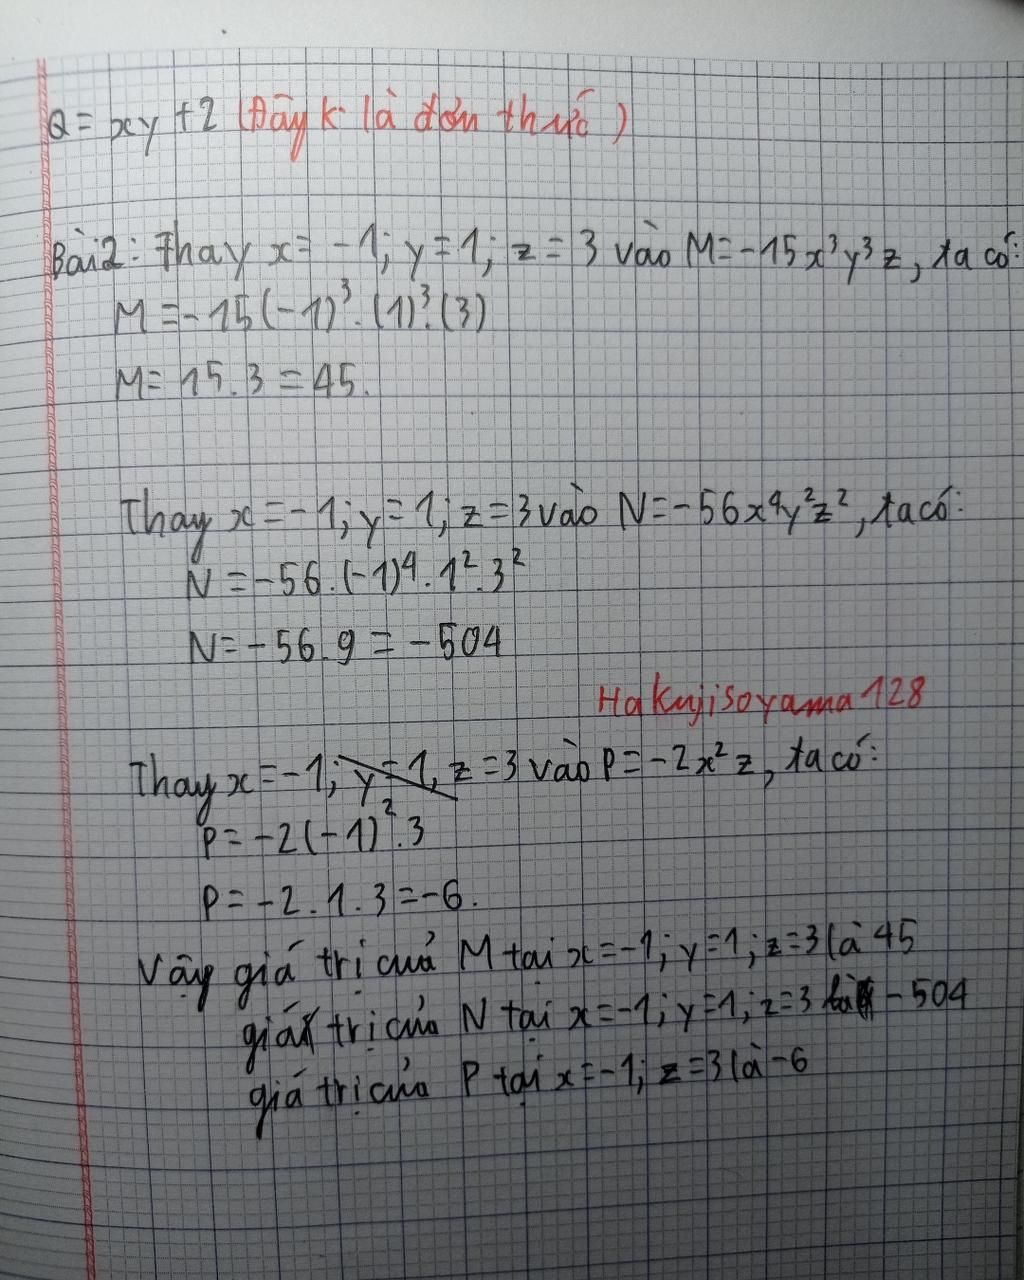 Q = xy + 2 (Đây k là đơn thức)
Bài 2: Thay x = -1; y = 1; z = 3 vào M = -15x³y³z, ta có:
M = -15(-1)³.(1)³.(3)
M = 15.3 = 45.
Thay x = -1; y = 1; z = 3 vào N = -56x⁴y²z², ta có:
N = -56.(-1)⁴.1².3²
N = -56.9 = -504
Hakujisoyama128
Thay x = -1; y = 1, z = 3 vào P = -2x²z, ta có:
P = -2(-1)².3
P = -2.1.3 = -6.
Vậy giá trị của M tại x = -1; y = 1; z = 3 là 45
giá trị của N tại x = -1; y = 1; z = 3 là -504
giá trị của P tại x = -1; z = 3 là -6